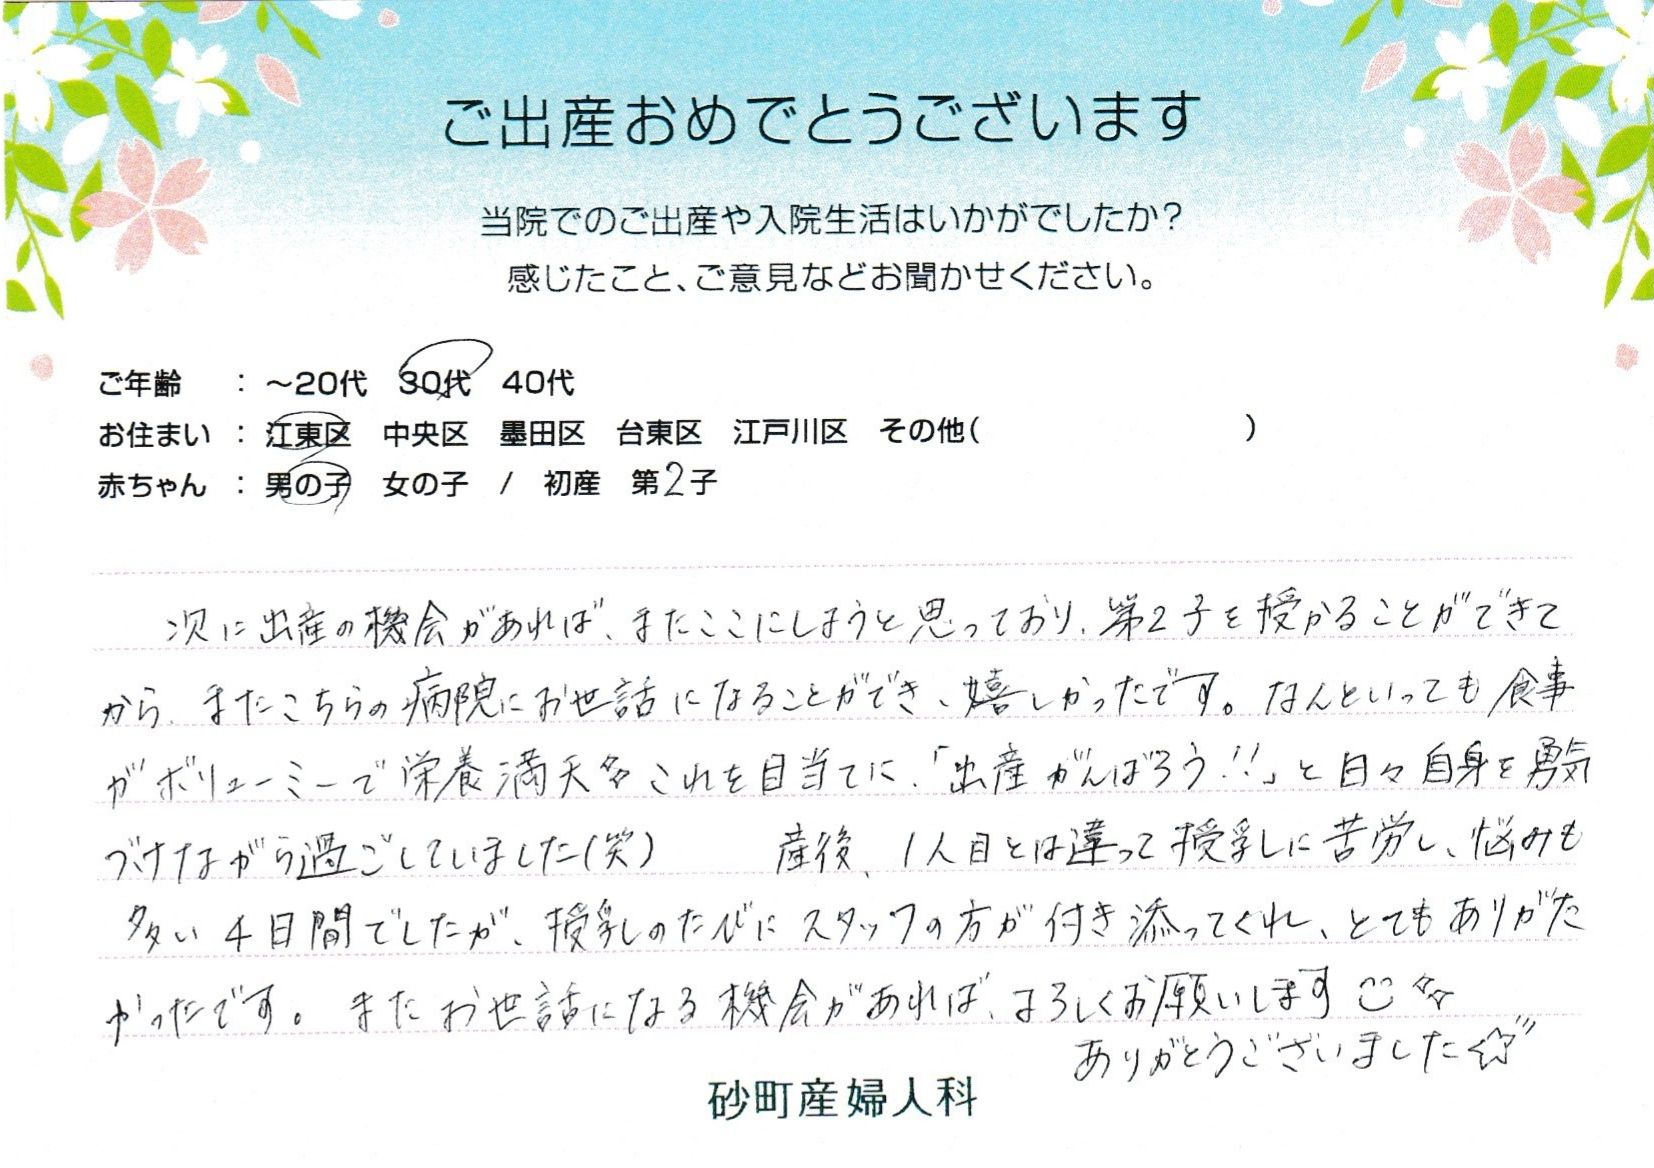 ご出産おめでとうございます
当院でのご出産や入院生活はいかがでしたか?
感じたこと、ご意見などお聞かせください。
ご年齢 : ～20代 30代 40代
お住まい : 江東区 中央区 墨田区 台東区 江戸川区 その他( )
赤ちゃん : 男の子 女の子 / 初産 第2子
次に出産の機会があれば、またここにしようと思っており、第2子を授かることができて
から、またこちらの病院にお世話になることができ、嬉しかったです。なんといっても食事
がボリューミーで栄養満天☆ これを目当てに、「出産がんばろう!!」と日々自身を勇気
づけながら過ごしていました(笑) 産後、1人目とは違って授乳しに苦労し、悩みも
多い4日間でしたが、授乳しのたびにスタッフの方が付き添ってくれ、とてもありがた
かったです。またお世話になる機会があれば、よろしくお願いします☺☆
ありがとうございました☆
砂町産婦人科